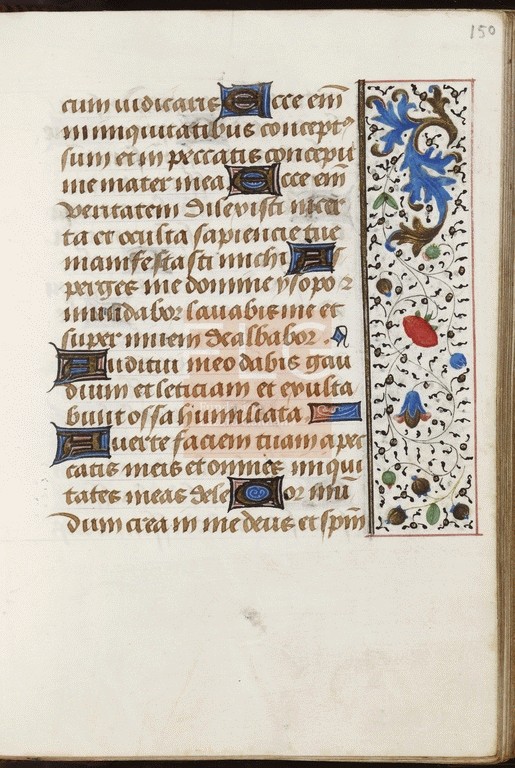 150
cum iudicaris Ecce em̄
in iniquitatibus concept⁹
sum et in peccatis concepit
me mater mea Ecce em̄
veritatem dilexisti incer
ta et oculta sapiencie tue
manifestasti michi A
perges me domine ysopo ⁊
mundabor lauabis me et
super niuem dealbabor.
Auditui meo dabis gau
dium et leticiam et exulta
bunt ossa humiliata
Auerte faciem tuam a pec
catis meis et omnes iniqui
tates meas dele Cor mū
dum crea in me deus et spm̄